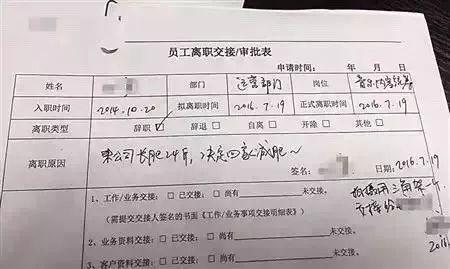 员工离职交接/审批表
申请时间： 年 月 日
姓名 部门 运营部门 岗位 音乐
入职时间 2014.10.20 拟离职时间 2016.7.19 正式离职时间 2016.7.19
离职类型 辞职☑ 辞退□ 自离□ 开除□ 其他□
离职原因 来公司长肥24斤，决定回家减肥～
签名： 日期：2016.7.19
1、工作/业务交接：□已交接；□尚有 未交接。
（需提交交接人签名的书面《工作/业务事项交接明细表》）
2、业务资料交接：□已交接；□尚有 未交接。
3、客户资料交接：□已交接；□尚有 未交接。
三角架一个
交接给
2016